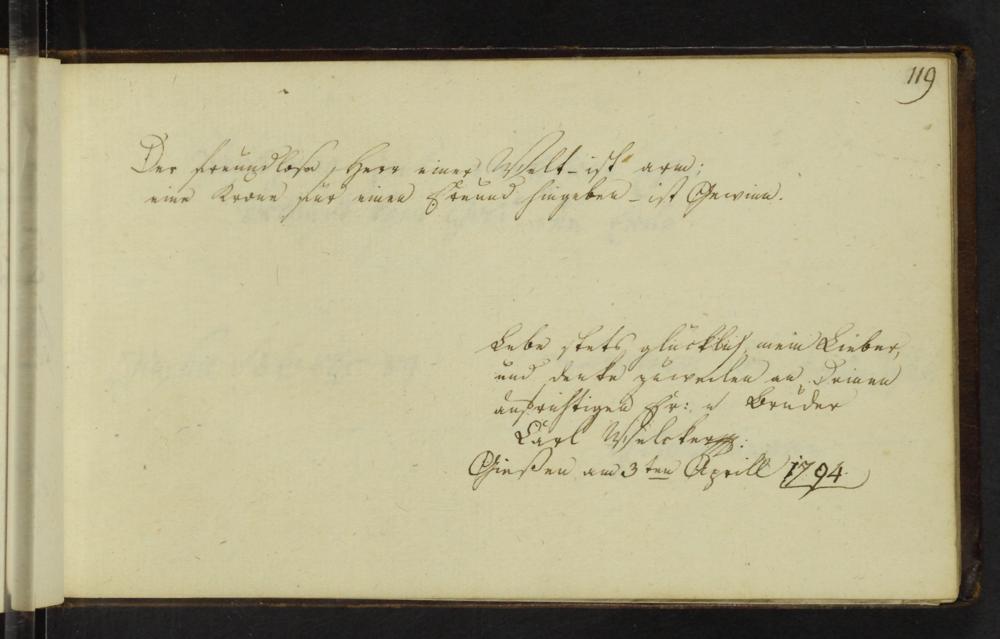 119
Der freundlose Herr einer Welt – ist arm;
eine Krone für einen Freund hingeben – ist Gewinn.
Lebe stets glücklich, mein Lieber,
und denke zuweilen an Deinen
aufrichtigen Fr: u Bruder
Carl Welcker
Gießen am 3ten Aprill 1794.